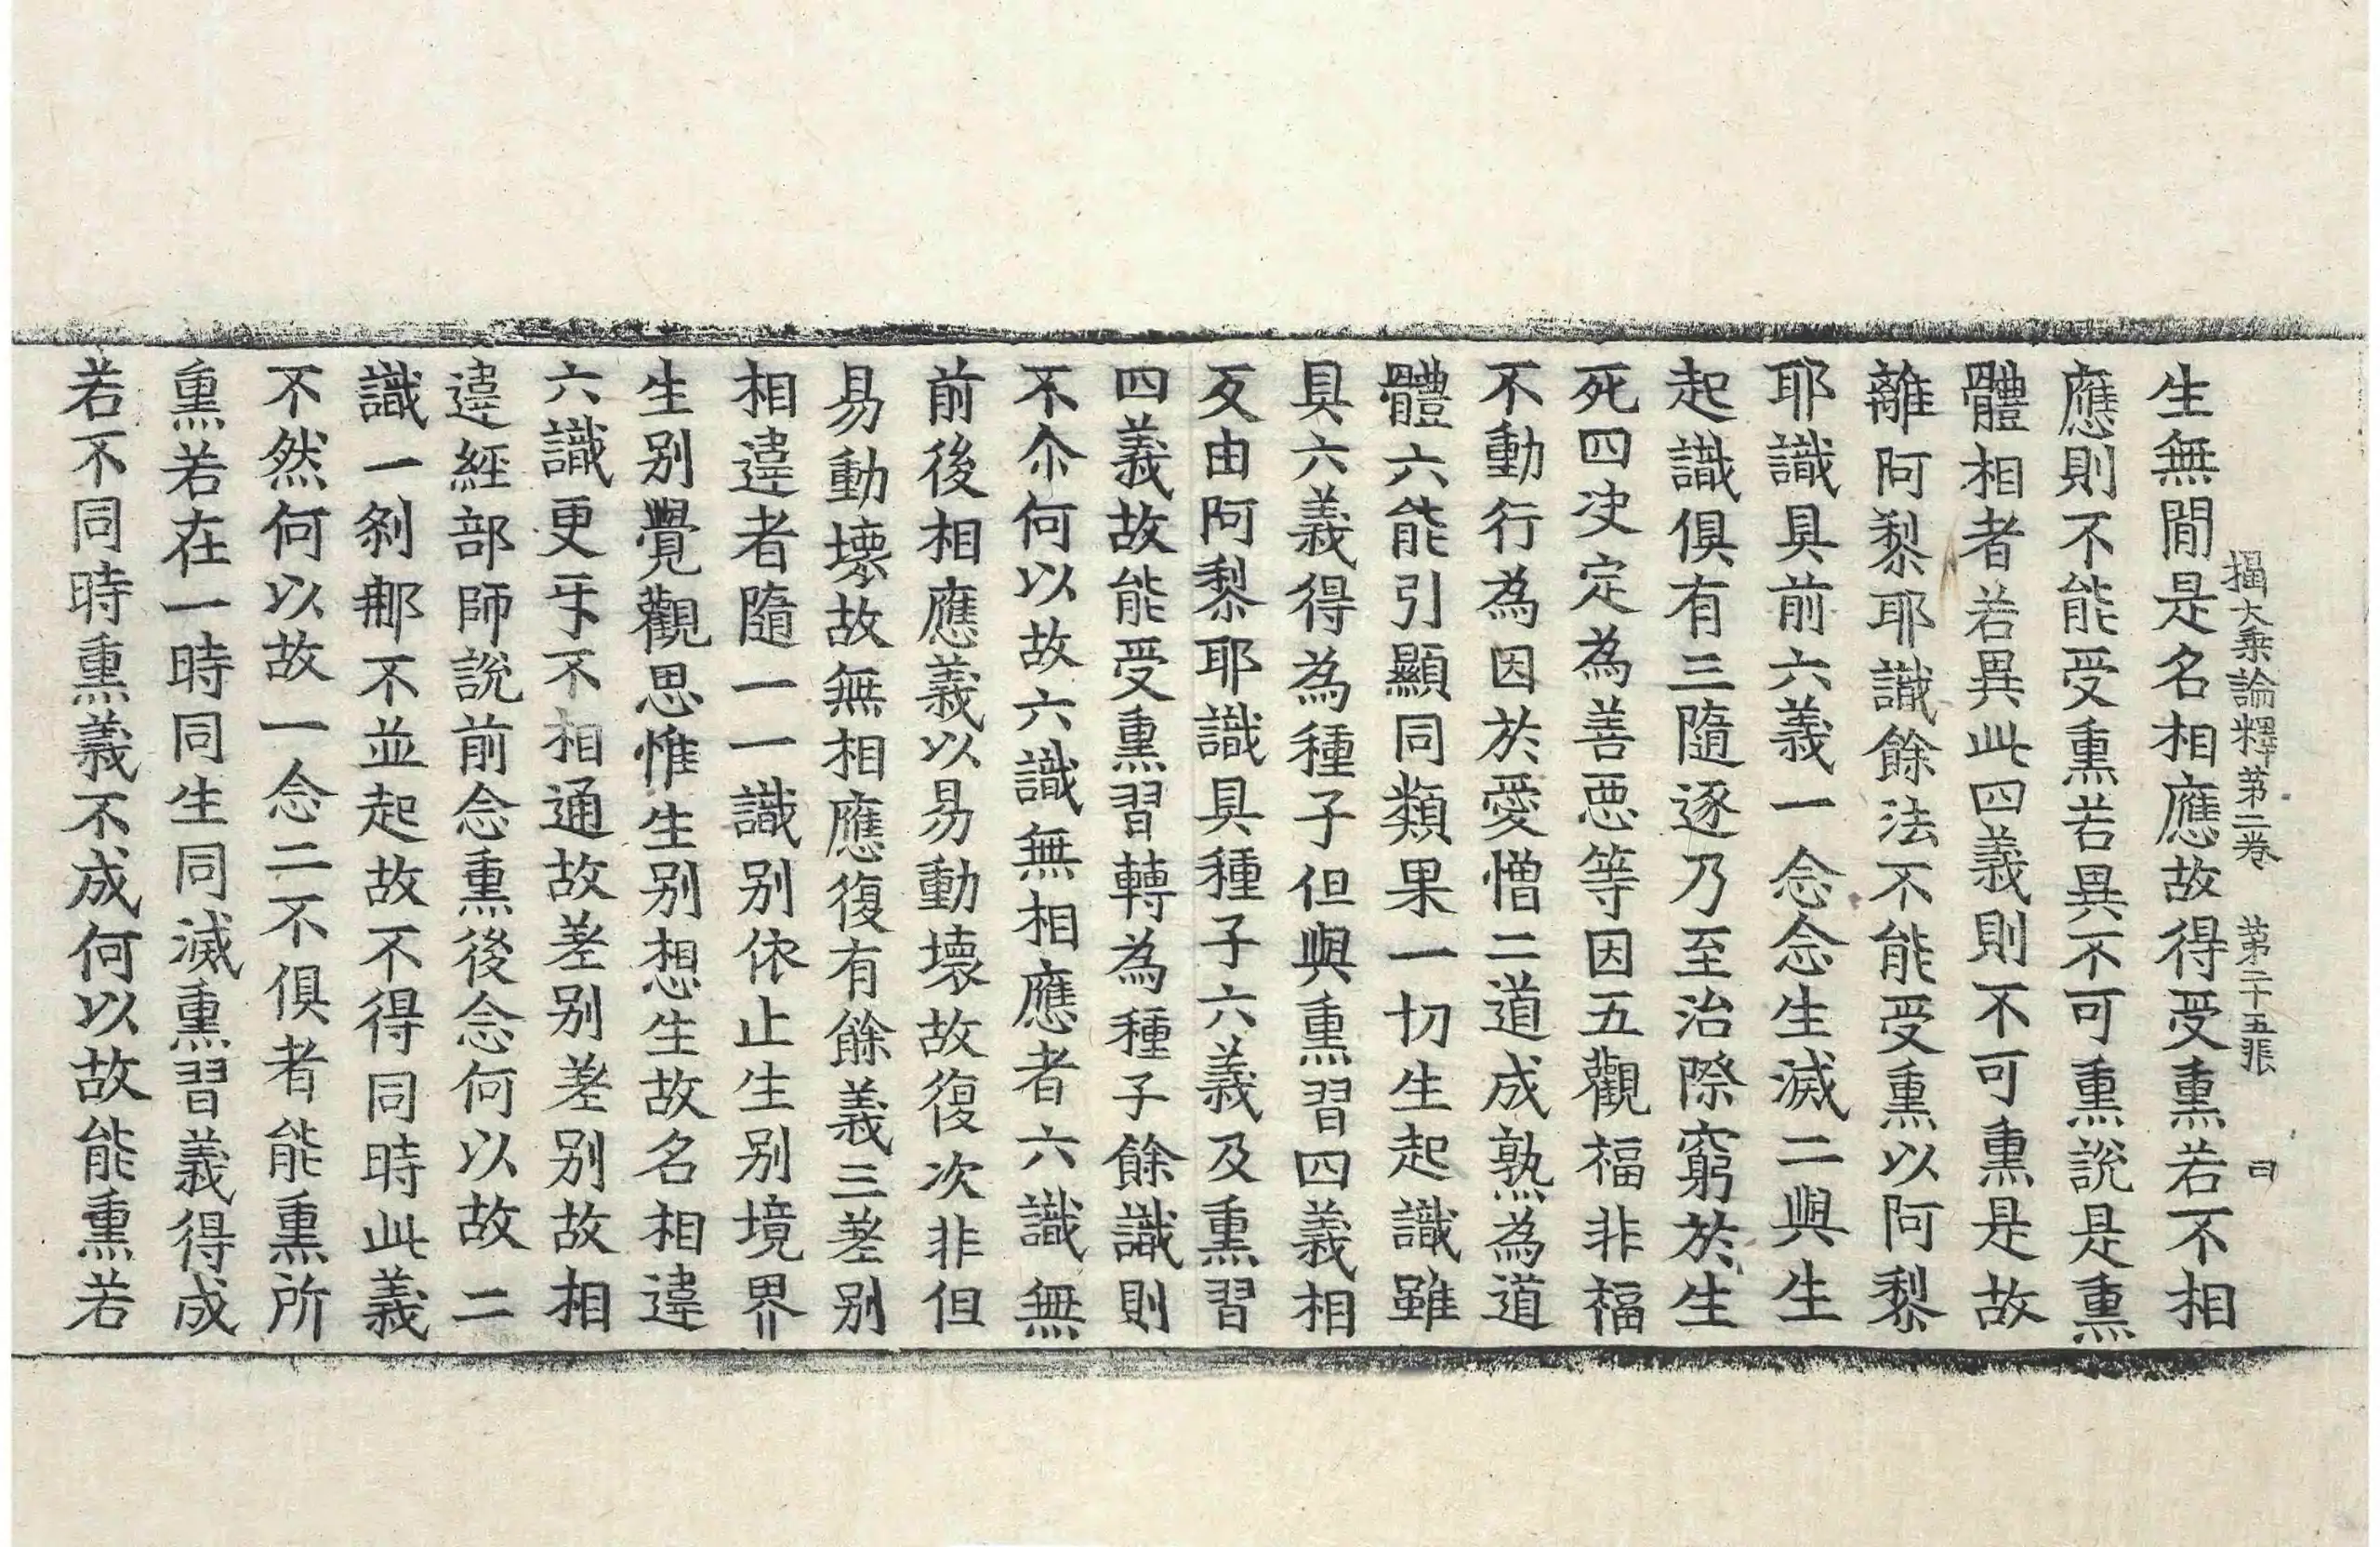 攝大乘論釋第二卷 第二十五張 曰
生無間是名相應故得受熏若不相
應則不能受熏若異不可熏說是熏
體相者若異此四義則不可熏是故
離阿黎耶識餘法不能受熏以阿黎
耶識具前六義一念念生滅二與生
起識俱有三隨逐乃至治際窮於生
死四决定為善惡等因五觀福非福
不動行為因於愛憎二道成熟為道
體六能引顯同類果一切生起識雖
具六義得為種子但與熏習四義相
反由阿黎耶識具種子六義及熏習
四義故能受熏習轉為種子餘識則
不尒何以故六識無相應者六識無
前後相應義以易動壞故復次非但
易動壞故無相應復有餘義三差别
相違者隨一一識别依止生别境界
生别覺觀思惟生别想生故名相違
六識更互不相通故差别差别故相
違經部師說前念熏後念何以故二
識一剎那不並起故不得同時此義
不然何以故一念二不俱者能熏所
熏若在一時同生同滅熏習義得成
若不同時熏義不成何以故能熏若